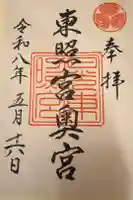 奉拝
東照宮奥宮
令和八年五月十六日